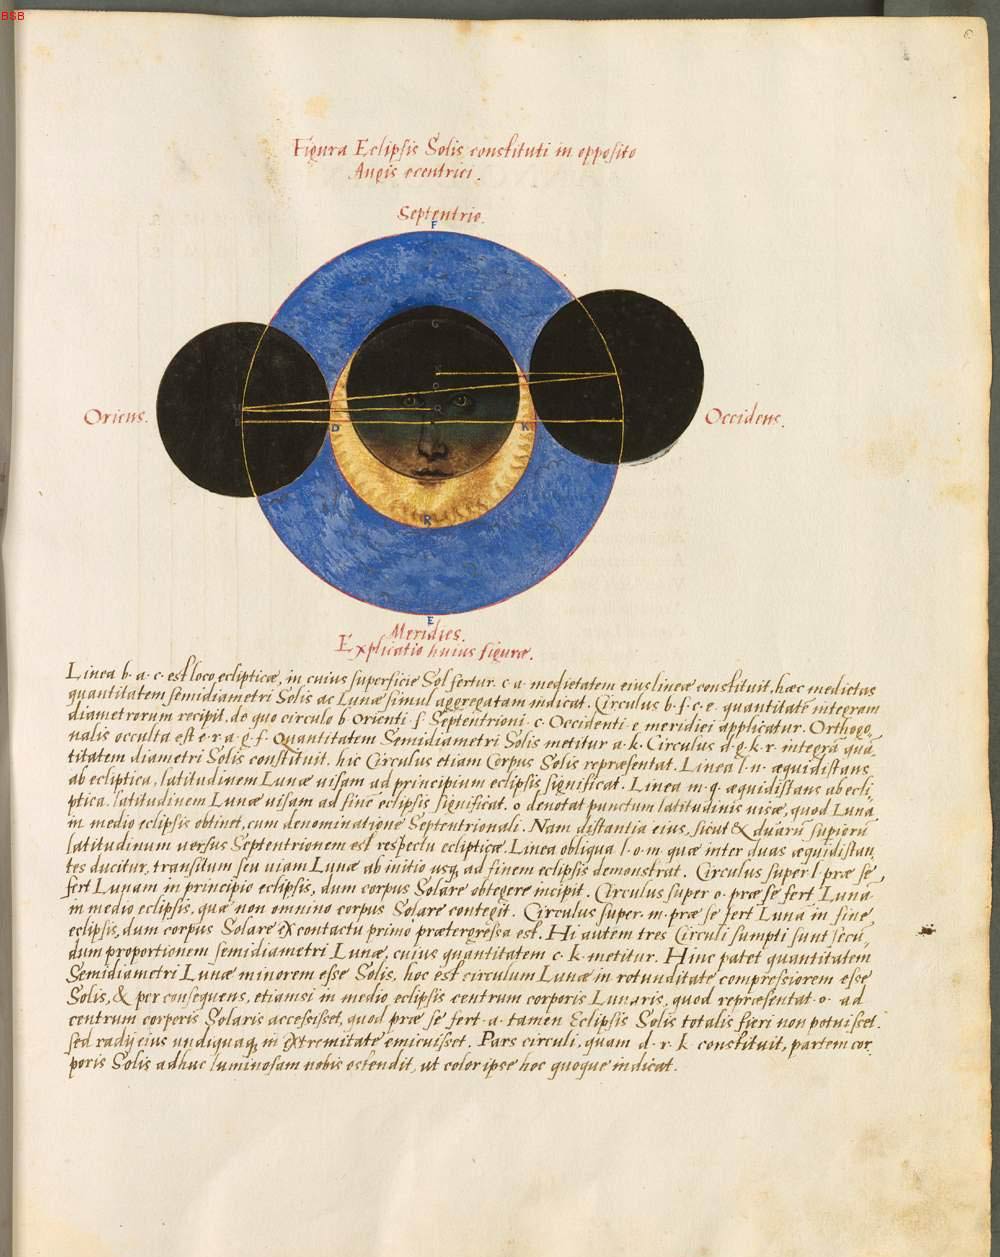 BSB
Figura Eclipsis Solis constituti in opposito
Augis ecentrici.
Septentrio.
F
G
Oriens.
Occidens.
D
K
R
E
Meridies.
Explicatio huius figuræ.
Linea b·a·c·est loco eclipticæ, in cuius superficie Sol fertur. c·a·medietatem eius lineæ constituit, hæc medietas
quantitatem semidiametri Solis ac Lunæ simul aggregatam indicat. Circulus b·f·c·e· quantitatē integram
diametrorum recipit, de quo circulo b Orienti·f·Septentrioni·c·Occidenti·e meridiei applicatur. Orthogo„
nalis occulta est e·r·a·g·f·Quantitatem Semidiametri Solis metitur a·k·Circulus d·g·k·r·integrā quā„
titatem diametri Solis constituit, hic Circulus etiam Corpus Solis repræsentat. Linea l·n·æquidistans
ab ecliptica, latitudinem Lunæ uisam ad principium eclipsis significat. Linea m·q·æquidistans ab ecli„
ptica, latitudinem Lunæ uisam ad finē eclipsis significat. o denotat punctum latitudinis uisæ, quod Luna
in medio eclipsis obtinet, cum denominatione Septentrionali. Nam distantia eius, sicut & duarū supiorū
latitudinum uersus Septentrionem est respectu eclipticæ. Linea obliqua l·o·m·quæ inter duas æquidistan„
tes ducitur, transitum seu uiam Lunæ ab initio usq; ad finem eclipsis demonstrat. Circulus super l·præ se
fert Lunam in principio eclipsis, dum corpus Solare obtegere incipit. Circulus super o·præ se fert Lunā
in medio eclipsis, quæ non omnino corpus Solare contegit. Circulus super·m·præ se fert Lunā in fine
eclipsis, dum corpus Solare ex contactu primo prætergressa est. Hi autem tres Circuli sumpti sunt secū„
dum proportionem semidiametri Lunæ, cuius quantitatem c·k·metitur. Hinc patet quantitatem
Semidiametri Lunæ minorem esse Solis, hoc est circulum Lunæ in rotunditate compressiorem esse
Solis, & per consequens, etiamsi in medio eclipsis centrum corporis Lunaris, quod repræsentat·o·ad
centrum corporis Solaris accessisset, quod præ se fert·a·tamen Eclipsis Solis totalis fieri non potuisset.
sed radij eius undiquaq; in extremitate emicuisset. Pars circuli, quam d·r·k constituit, partem cor„
poris Solis adhuc luminosam nobis ostendit, ut color ipse hoc quoque indicat.